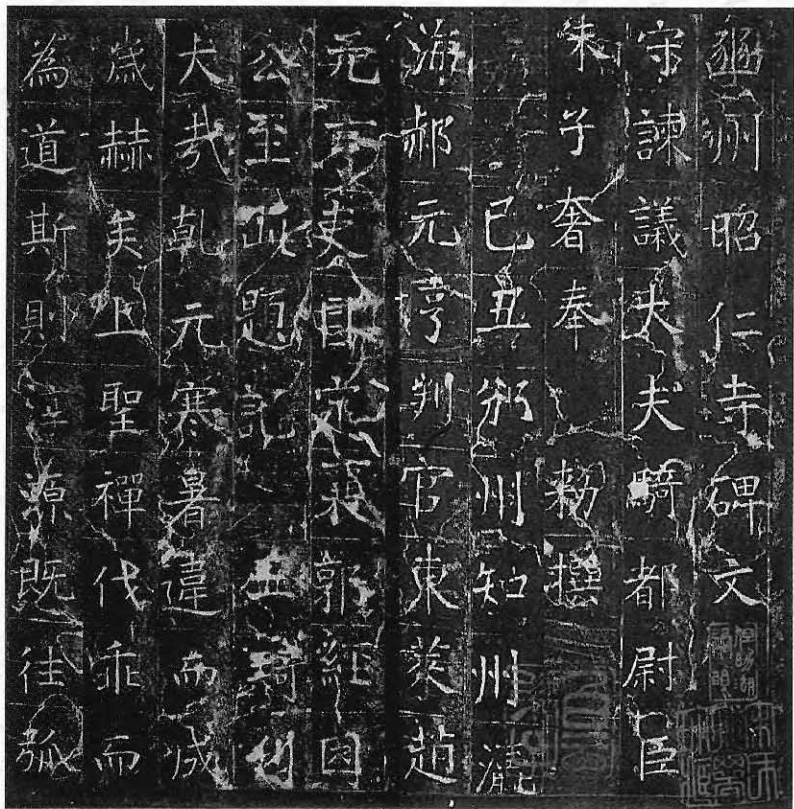 豳州昭仁寺碑文
守諫議大夫騎都尉臣
朱子奢奉勑撰
己丑邠州知州
海郝元亨判官東萊趙
吏目定襄郭經因
公至此題記
大哉乾元寒暑違而成
歲赫矣上聖禪代乖而
為道斯則淳源既往弧